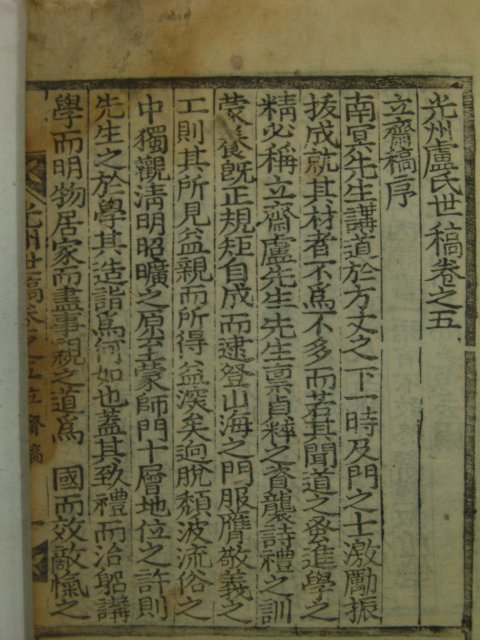 光州盧氏世稿卷之五
立齋稿序
南冥先生講道於方丈之下一時及門之士激勵振
拔成就其材者不爲不多而若其聞道之蚤進學之
精必稱立齋盧先生先生稟貞粹之資襲詩禮之訓
蒙養旣正規矩自成而逮登山海之門服膺敬義之
工則其所見益親而所得益深矣逈脫頹波流俗之
中獨觀淸明昭曠之原至蒙師門十層地位之許則
先生之於學其造詣爲何如也蓋其致禮而治躬講
學而明物居家而盡事親之道爲 國而效敵愾之
光州世稿卷之五 立齋稿 一